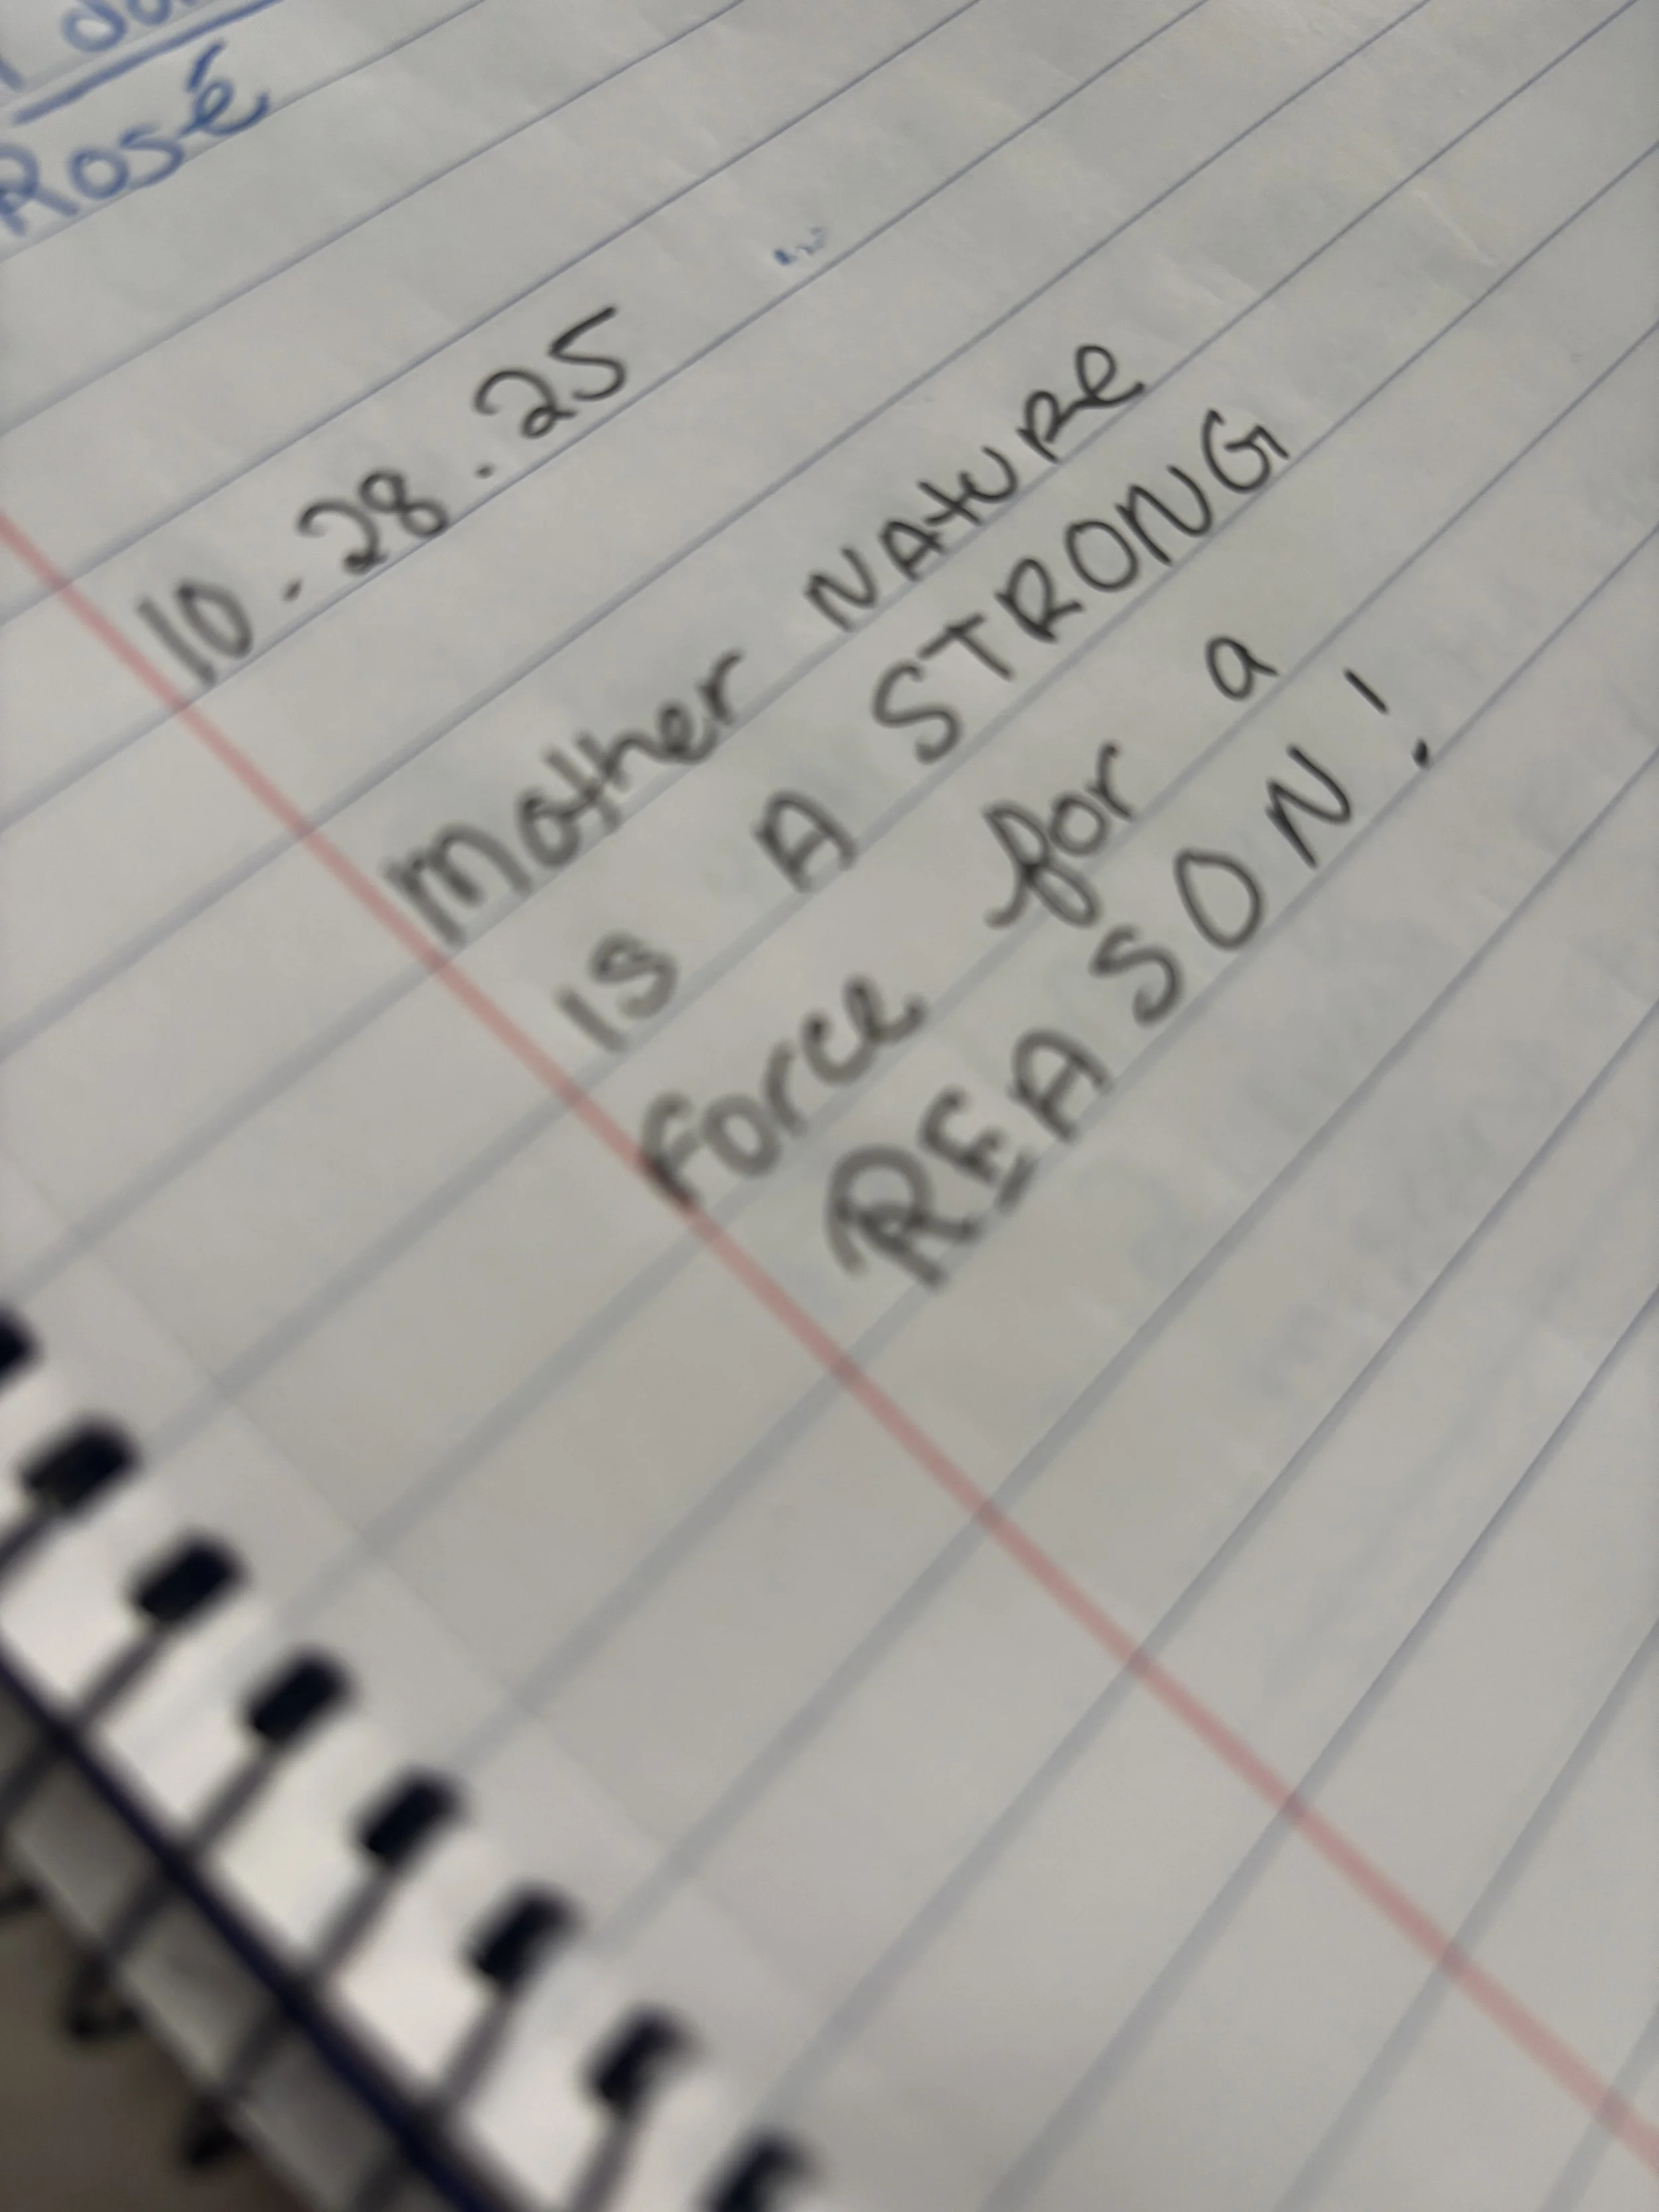 Rosé
10.28.25
Mother NAtURe
IS A STRONG
Force for a
REASON!